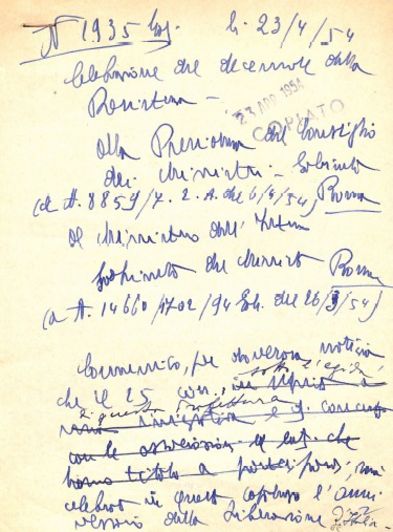 N 1935 Gab. li 23/4/54
Celebrazione del decennale della
Resistenza -
23 APR 1954
COPIATO
Alla Presidenza del Consiglio
dei Ministri - Gabinetto
(a A. 8859/7.2.A. del 6/4/54) Roma
Al Ministero dell'Interno
Gabinetto del Ministro Roma
(a A. 14660/1702/94 Gab. del 26/3/54)
Comunico, per doverosa notizia
sotto l'egida
che il 25 corr., in
di questa Prefettura
iniziativa e
con le associazioni ed enti che
hanno titolo a partecipare, sarà
celebrato in questo capoluogo l'anni
versario della Liberazione d'Italia